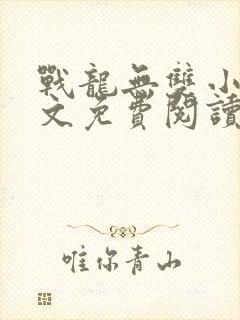 戰龍無雙小
文免費閱讀
唯你青山